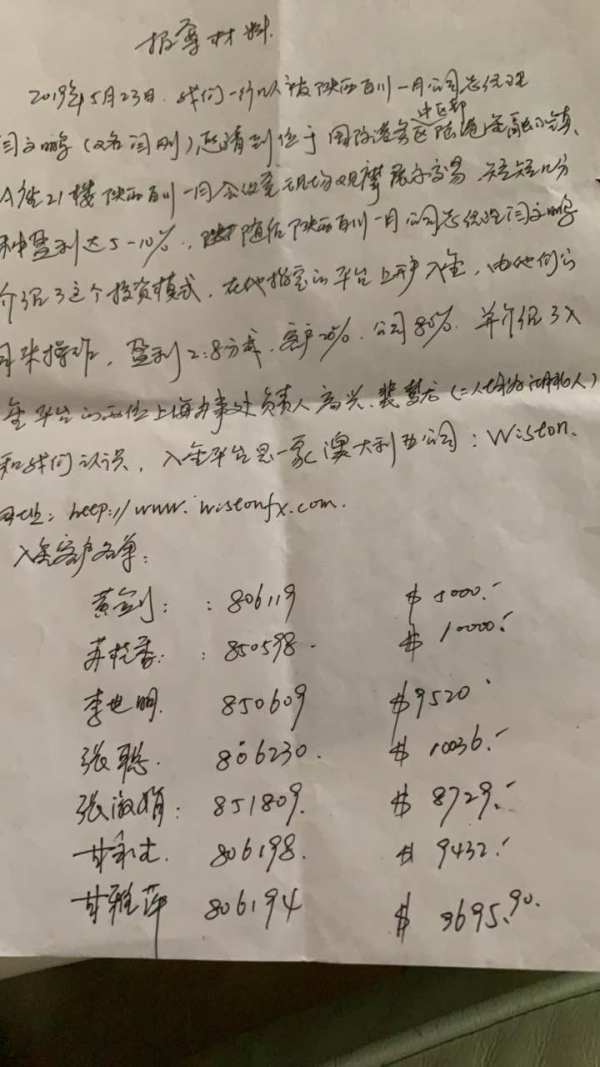 报案材料
2019年5月23日，我们一行八人被陕西百川一月公司总经理
闫文鹏（又名闫刚），邀请到位于国际港务区陆港金融小镇
中区部
A座21楼陕西百川一月会议室现场观摩展示交易，短短几分
钟盈利达5-10%，随后陕西百川一月公司总经理闫文鹏
介绍了这个投资模式，在他指定的平台上开户入金，由他们公
司来操作，盈利2:8分成，客户20%，公司80%，并介绍了入
金平台的两位上海办事处负责人高兴、裴梦龙（二人
和我们认识，入金平台是一家澳大利亚公司：Wiston.
网址：http://www.wistonfx.com.
入金客户名单：
黄剑：：806119 $5000.-
苏桂香：：850598. $10000.-
李世明. 850609 $9520
张聪. 806230. $10036.-
张淑娟：851809. $8729.-
甘永杰. 806198. $9432.-
甘雅萍 806194 $9695.90.